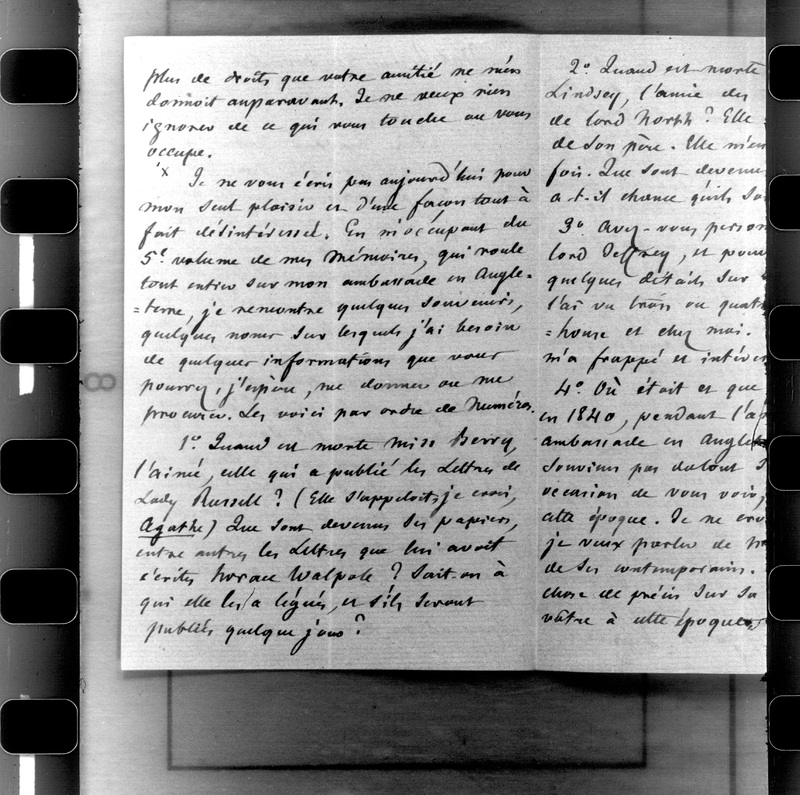 plus de droits que votre amitié ne m'en
donnoit auparavant. Je ne veux rien
ignorer de ce qui vous touche ou vous
occupe.
x Je ne vous écris pas aujourd'hui pour
mon seul plaisir et d'une façon tout à
fait désintéressée. En m'occupant du
5e volume de mes Mémoires, qui roule
tout entier sur mon ambassade en Angle-
=terre, je rencontre quelques souvenirs,
quelques noms sur lesquels j'ai besoin
de quelques informations que vous
pourrez, j'espère, me donner ou me
procurer. Les voici par ordre de Numéros.
1o Quand est morte miss Berry,
l'ainée, celle qui a publié les Lettres de
Lady Russell ? (Elle s'appeloit, je crois,
Agathe) Que sont devenus ses papiers,
entre autres les Lettres que lui avoit
écrites horace Walpole ? Sait-on à
qui elle les a légués, et s'ils seront
publiés quelque jour ?
2o Quand est morte
Lindsey, l'amie des
de lord North ? Elle
de son père. Elle m'en
fois. Que sont devenus
a-t-il chance qu'ils
3o Avez-vous
lord Jeffrey, et
quelques détails sur
l'ai vu trois ou
=house et chez moi.
m'a frappé et
4o Où était et que
en 1840, pendant
ambassade en
souviens pas du tout
occasion de vous voir,
cette époque. Je ne
je veux parler de
de ses contemporains.
chose de précis sur sa
vôtre à cette époque